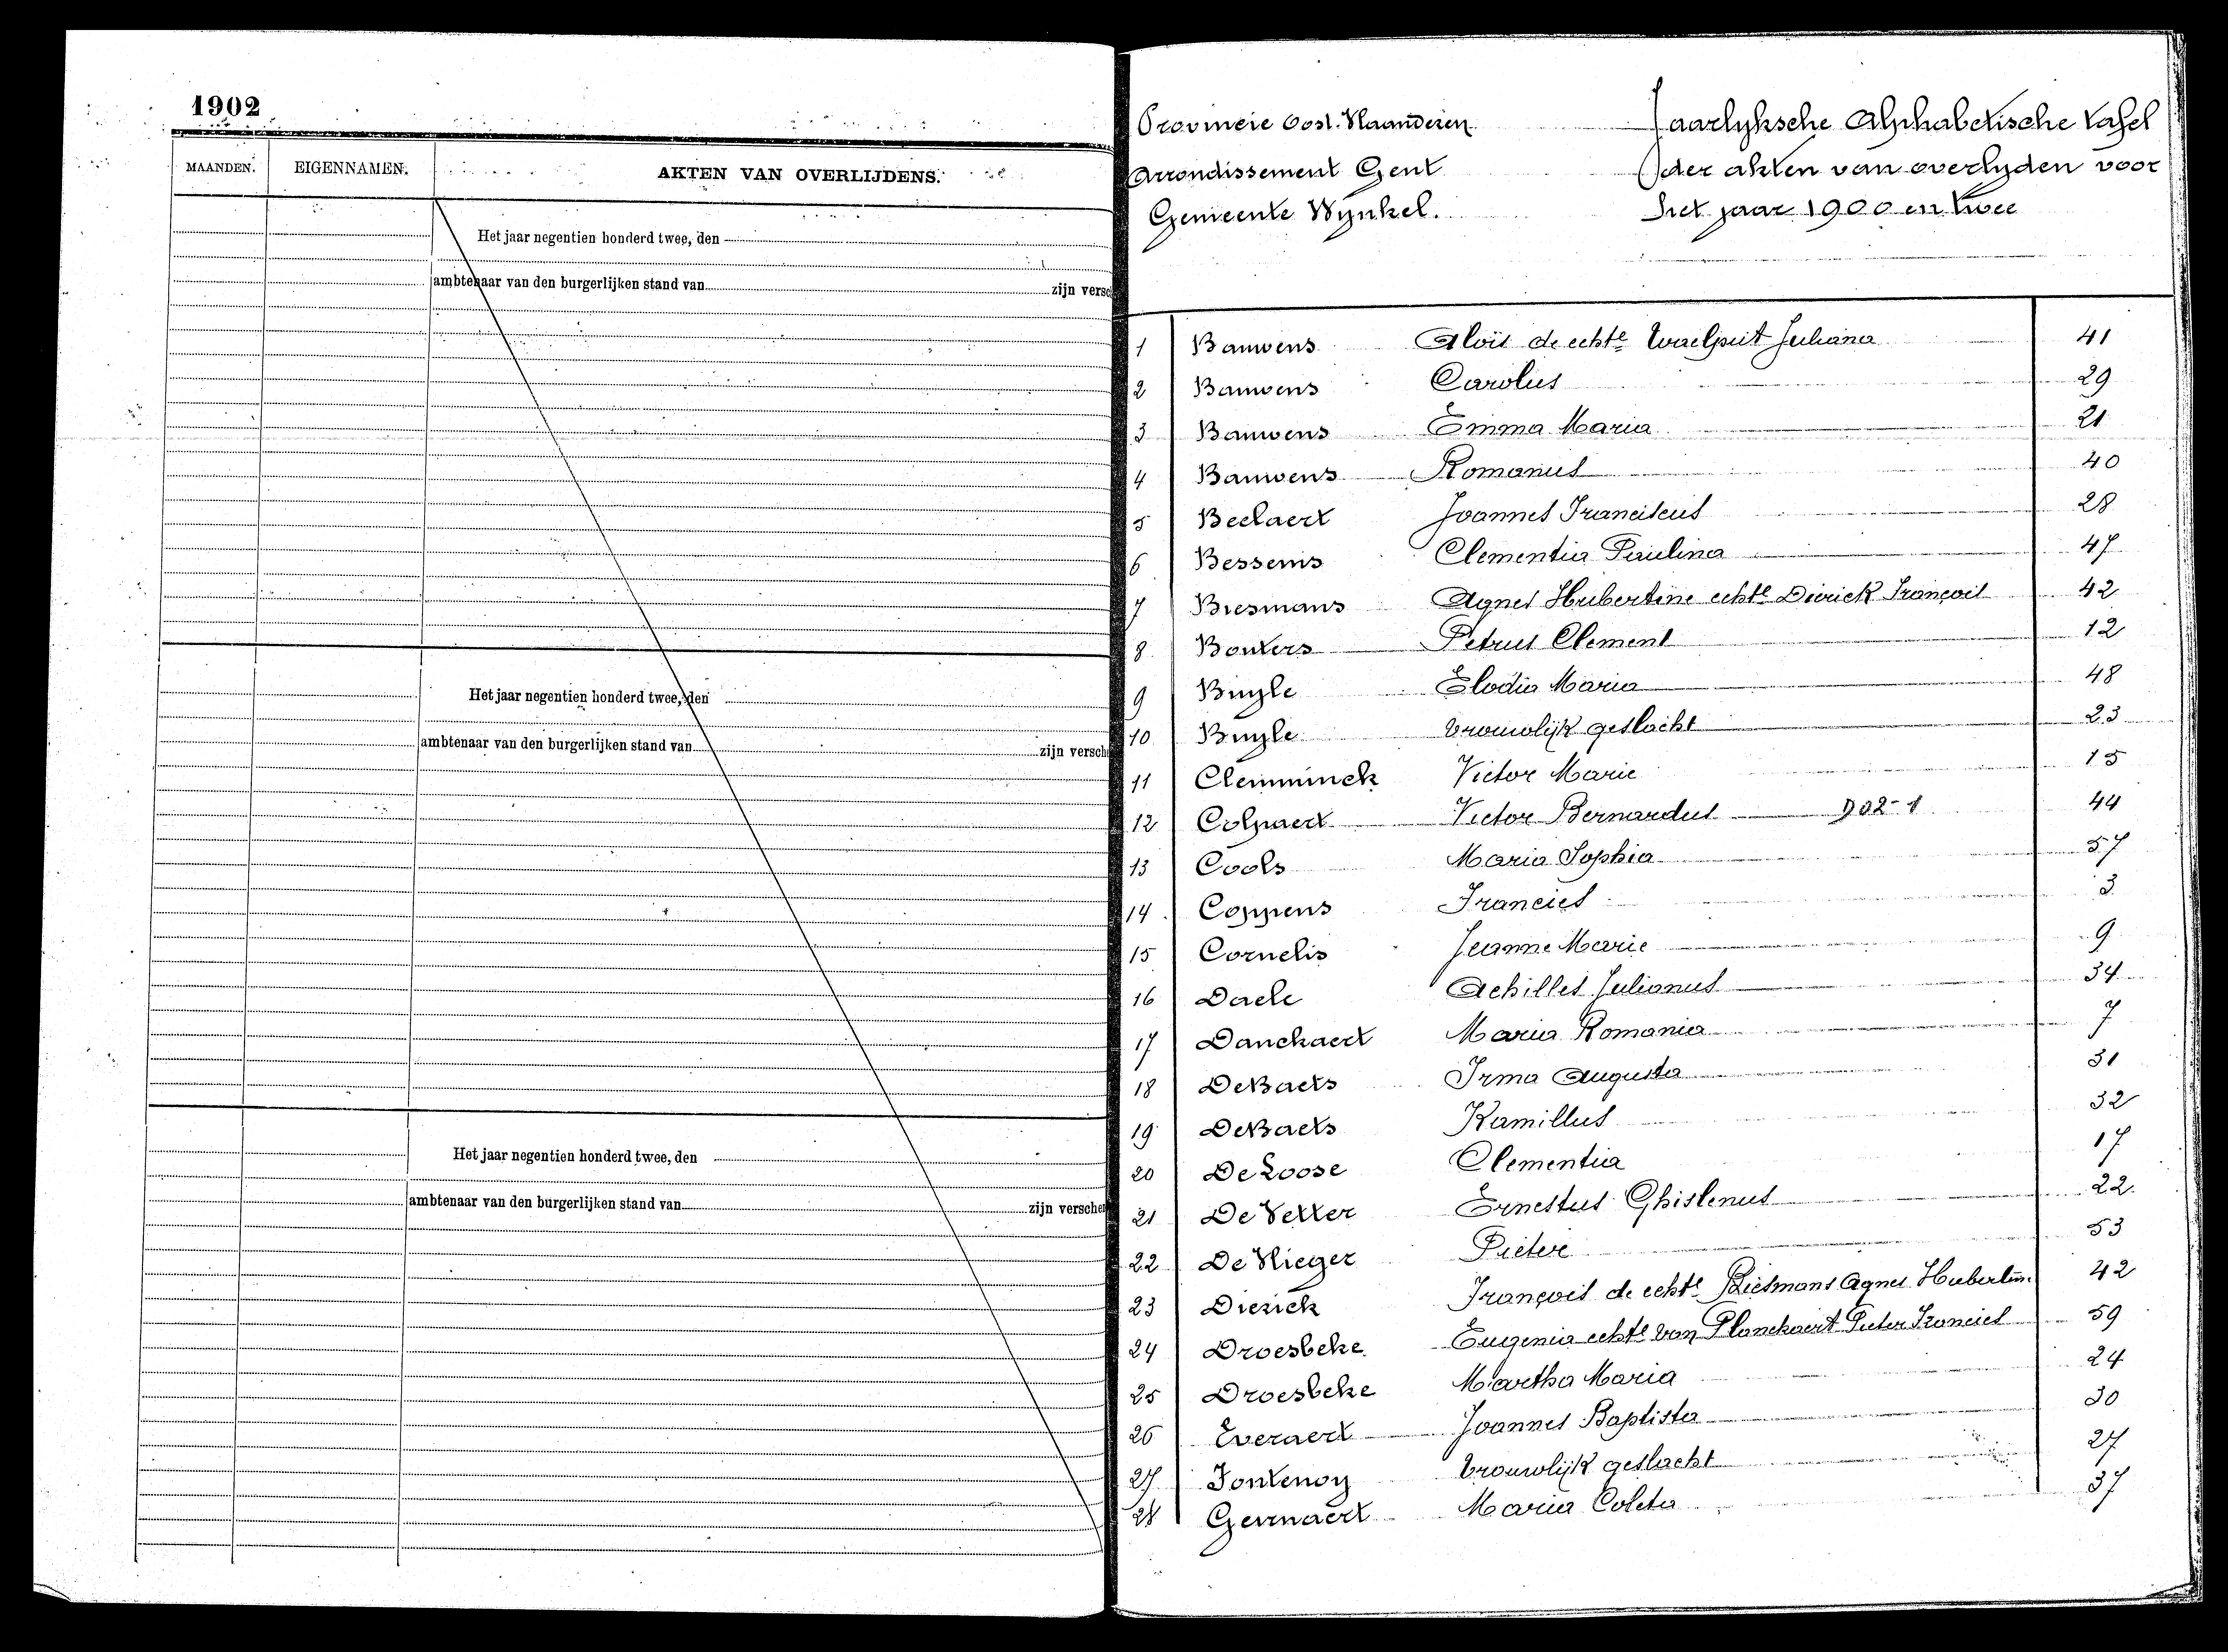 1902
MAANDEN. EIGENNAMEN. AKTEN VAN OVERLIJDENS.
Het jaar negentien honderd twee, den
ambtenaar van den burgerlijken stand van zijn versc
Het jaar negentien honderd twee, den
ambtenaar van den burgerlijken stand van zijn versch
Het jaar negentien honderd twee, den
ambtenaar van den burgerlijken stand van zijn versche
Provincie Oost. Vlaanderen Jaarlyksche Alphabetische tafel
Arrondissement Gent der akten van overlyden voor
Gemeente Wynkel. het jaar 1900 en twee
1 Bauwens Aloïs de echte Waelput Juliana 41
2 Bauwens Carolus 29
3 Bauwens Emma Maria 21
4 Bauwens Romanus 40
5 Beelaert Joannes Franciscus 28
6 Bessems Clementia Paulina 47
7 Biesmans Agnes Hubertine echte Dierick François 42
8 Bouters Petrus Clement 12
9 Buyle Elodia Maria 48
10 Buyle vrouwlijk geslacht 23
11 Clemminck Victor Marie 15
12 Colpaert Victor Bernardus 902-1 44
13 Cools Maria Sophia 57
14 Coppens Francies 3
15 Cornelis Jeanne Marie 9
16 Daele Achilles Julianus 34
17 Danckaert Maria Romania 7
18 DeBaets Irma Augusta 31
19 DeBaets Kamillus 32
20 De Loose Clementia 17
21 De Vetter Ernestus Ghislenus 22
22 De Vlieger Pieter 53
23 Dierick François de echte Biesmans Agnes Hubertin. 42
24 Droesbeke Eugenia echte van Planckaert Pieter Francies 59
25 Droesbeke Martha Maria 24
26 Everaert Joannes Baptista 30
27 Fontenoy vrouwlijk geslacht 27
28 Gevenaert Maria Coleta 37